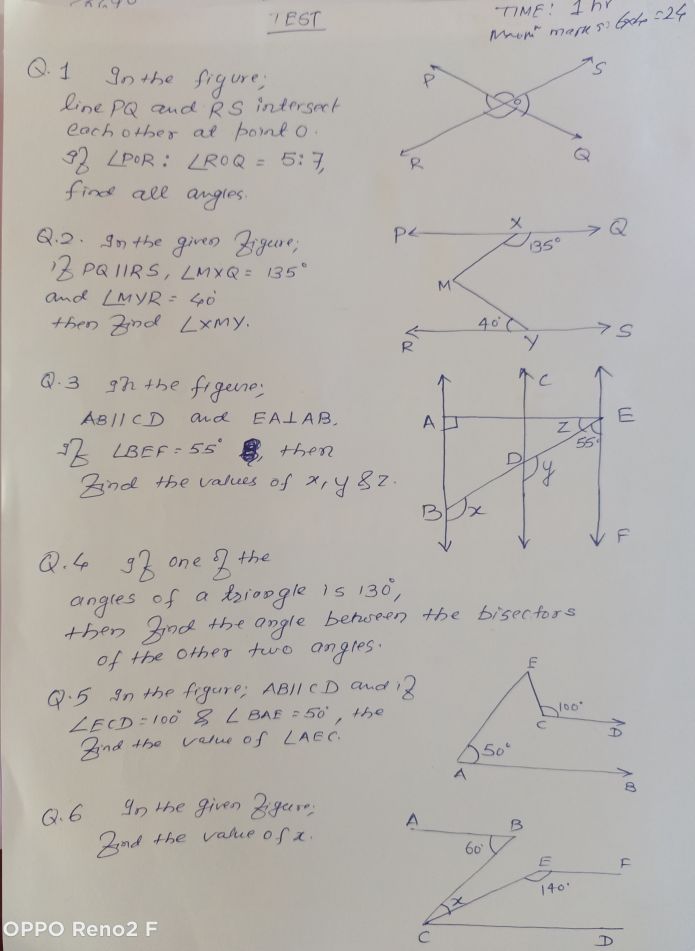 TEST
TIME: 1 hr
Maxm marks: 6x4=24
Q.1 In the figure;
line PQ and RS intersect
each other at point O.
If ∠POR : ∠ROQ = 5:7,
find all angles.
P
S
O
R
Q
Q.2. In the given figure;
if PQ||RS, ∠MXQ = 135°
and ∠MYR = 40°
then find ∠XMY.
P
X
Q
135°
M
40°
R
Y
S
Q.3 In the figure;
AB||CD and EA⊥AB.
If ∠BEF = 55°, then
find the values of x, y & z.
C
A
E
z
55°
D
y
B
x
F
Q.4 If one of the
angles of a triangle is 130°,
then find the angle between the bisectors
of the other two angles.
Q.5 In the figure; AB||CD and if
∠ECD = 100° & ∠BAE = 50°, the
find the value of ∠AEC.
E
100°
C
D
50°
A
B
Q.6 In the given figure;
find the value of x.
A
B
60°
E
F
140°
x
C
D
OPPO Reno2 F